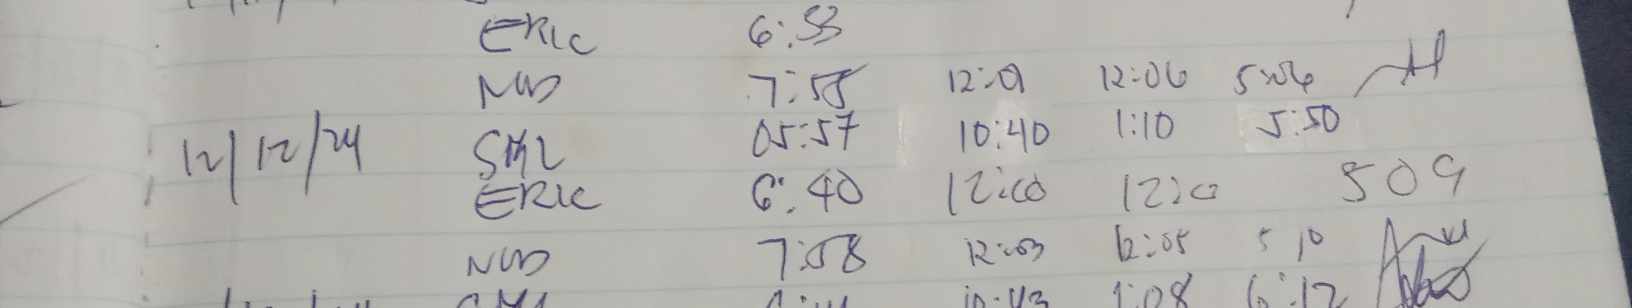 ERIC 6:53
7:58 12:01 12:06 5:06
12/12/24 05:57 10:40 1:10 5:50
ERIC 6:40 12:00 12:10 509
7:58 12:03 12:05 5 10
10:43 1:08 6:12